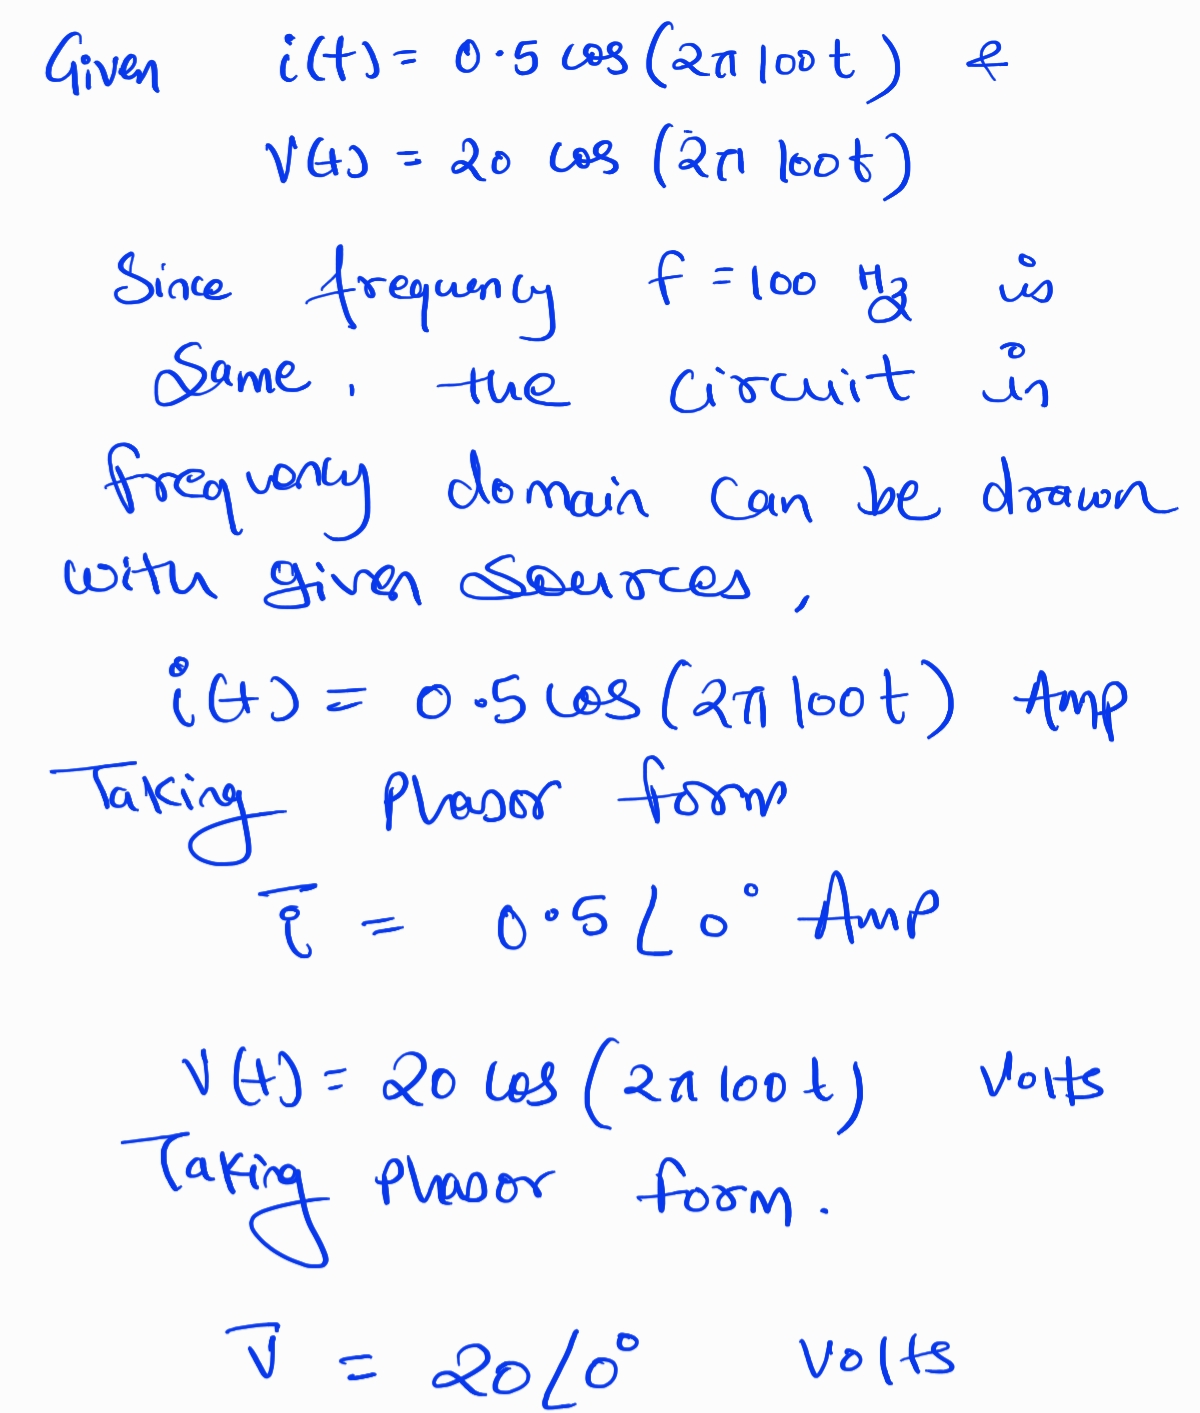 Given i(t) = 0.5 cos(2π 100 t) &
V(t) = 20 cos (2π 100t)
Since frequency f = 100 Hz is
Same, the circuit in
frequency domain can be drawn
with given Sources,
i(t) = 0.5 cos(2π 100 t) Amp
Taking Phasor form
i̅ = 0.5 ∠0° Amp
V(t) = 20 cos(2π 100 t) Volts
Taking phasor form.
V̅ = 20∠0° Volts